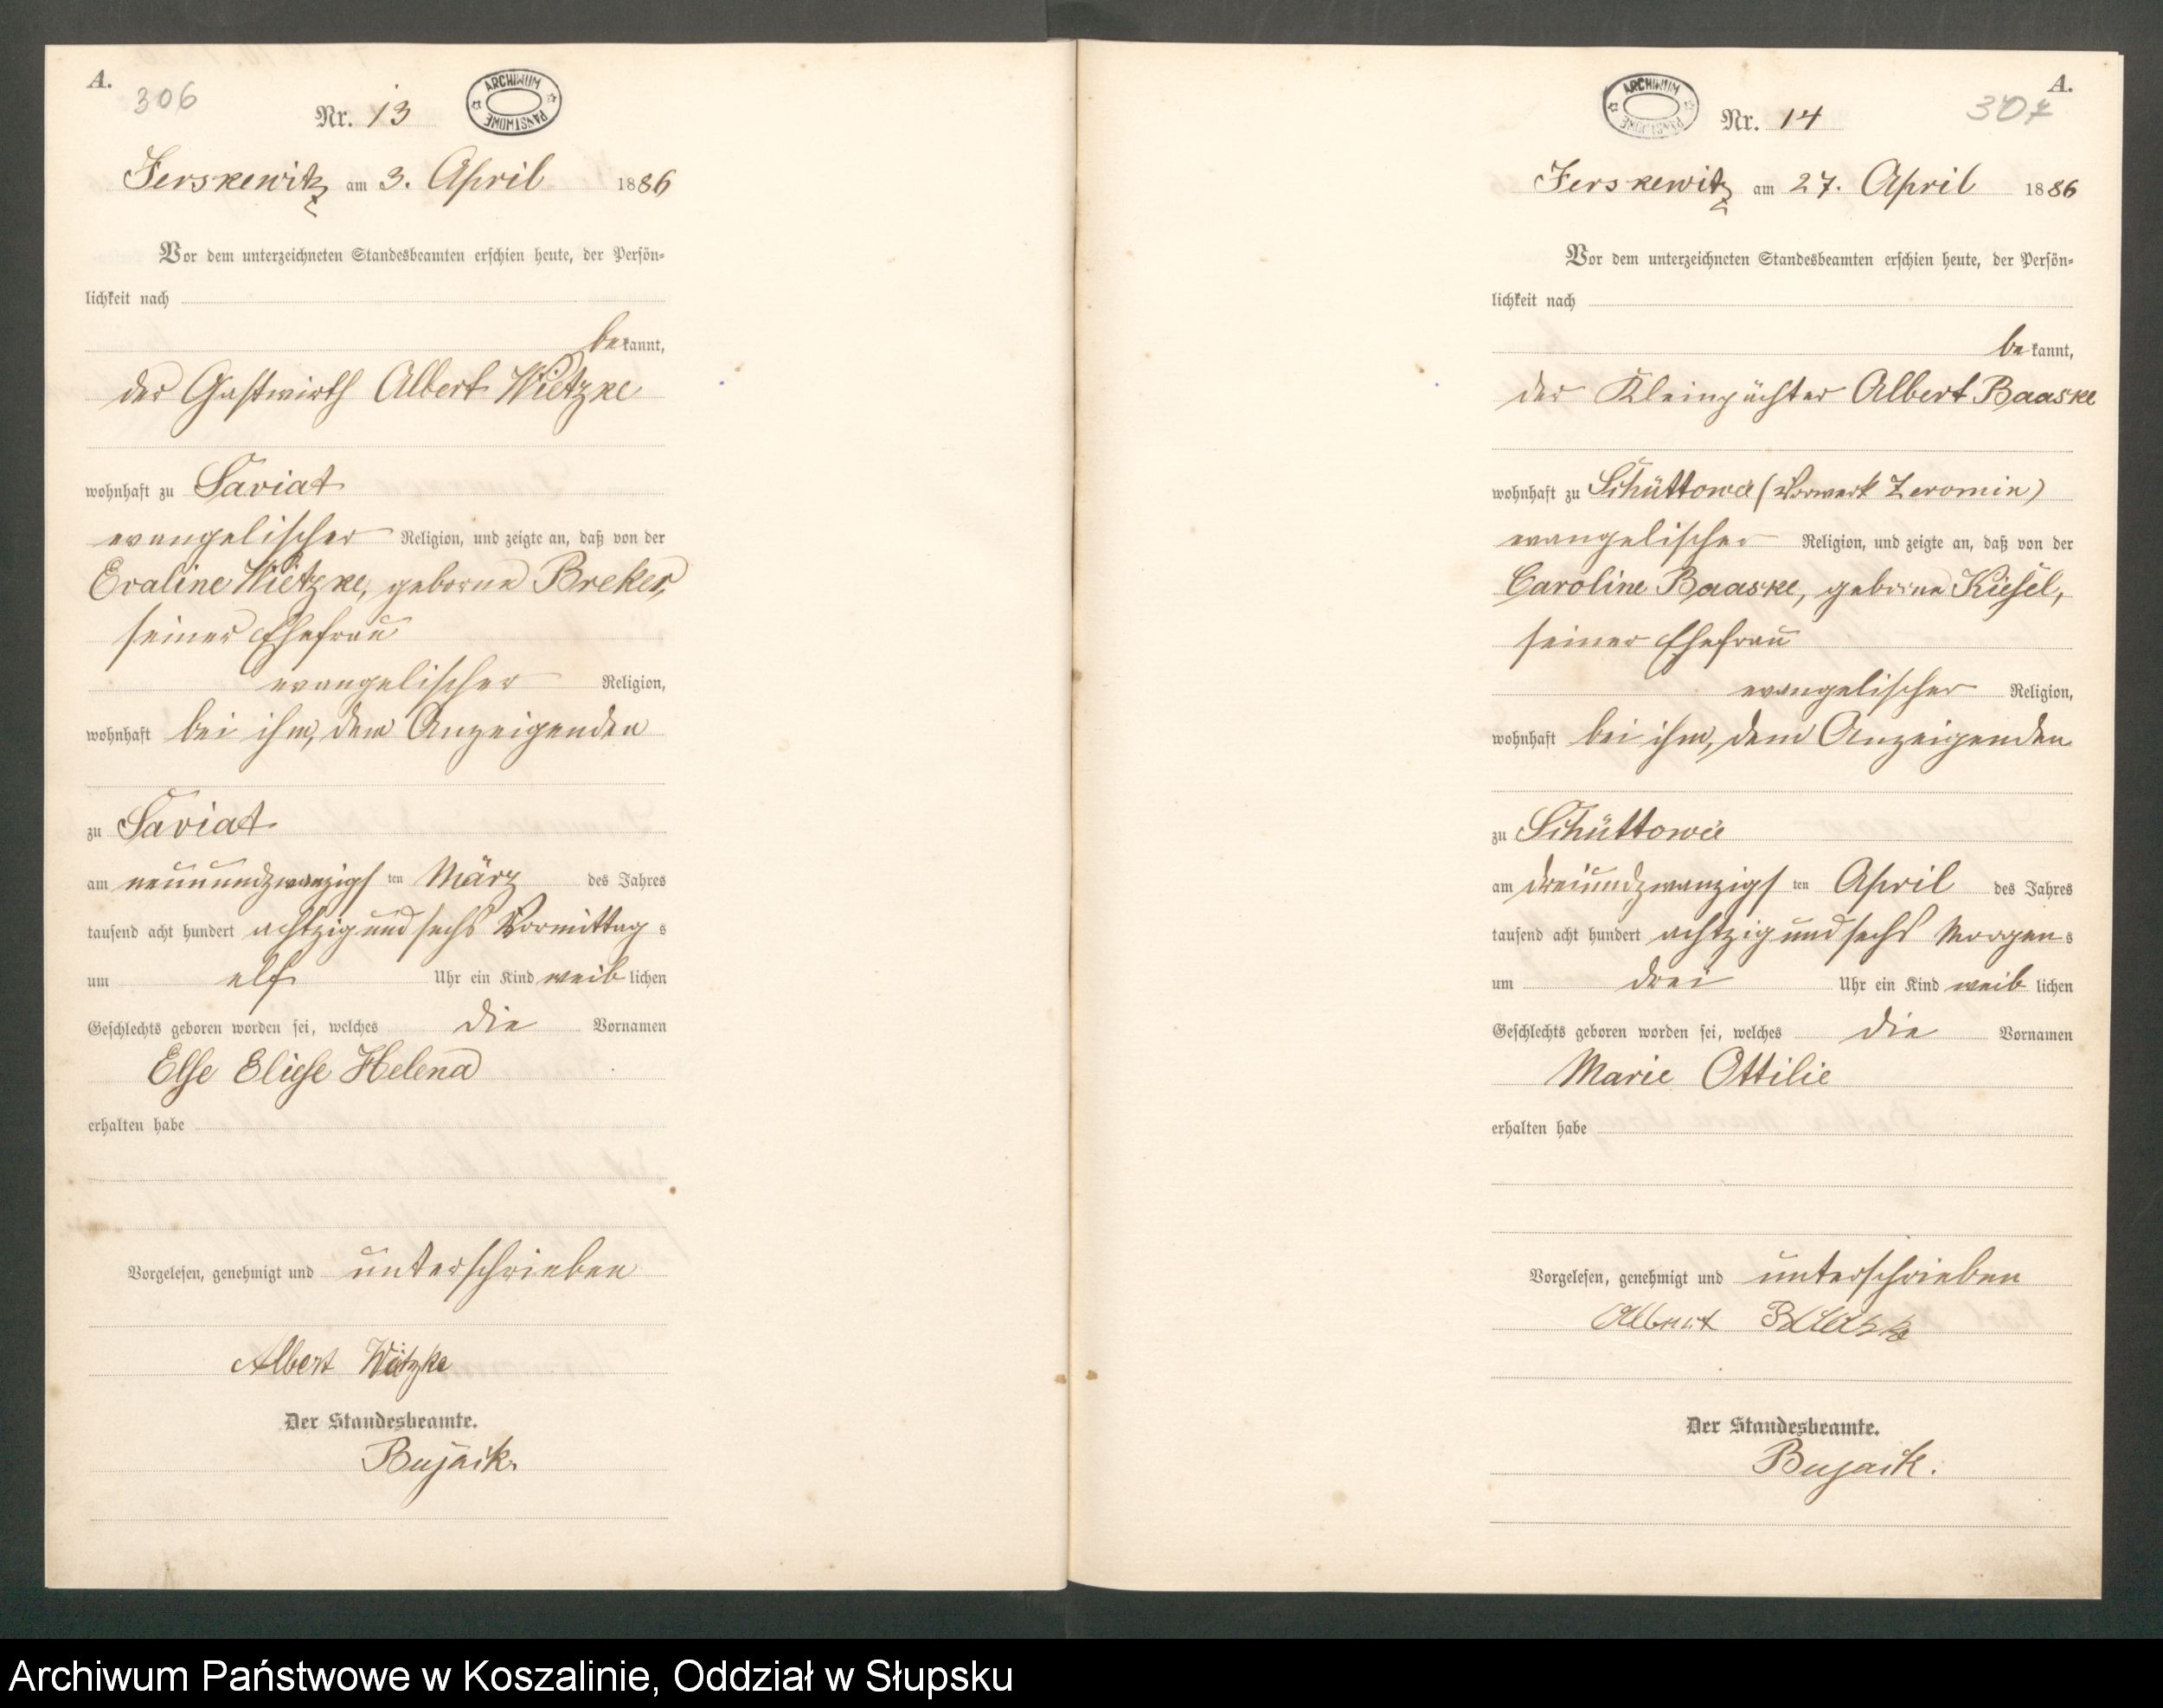 A.
306
Nr. 13
ARCHIWUM PAŃSTWOWE
Jerskewitz am 3. April 1886
Vor dem unterzeichneten Standesbeamten erschien heute, der Persön-
lichkeit nach
bekannt,
der Gastwirth Albert Wietzke
wohnhaft zu Saviat
evangelischer Religion, und zeigte an, daß von der
Evaline Wietzke, geborne Breker,
seiner Ehefrau
evangelischer Religion,
wohnhaft bei ihm, dem Anzeigenden
zu Saviat
am neunundzwanzigsten März des Jahres
tausend acht hundert achtzig und sechs Vormittags
um elf Uhr ein Kind weiblichen
Geschlechts geboren worden sei, welches die Vornamen
Else Eliese Helena
erhalten habe
Vorgelesen, genehmigt und unterschrieben
Albert Wietzke
Der Standesbeamte.
Bujack.
A.
307
ARCHIWUM PAŃSTWOWE
Nr. 14
Jerskewitz am 27. April 1886
Vor dem unterzeichneten Standesbeamten erschien heute, der Persön-
lichkeit nach
bekannt,
der Kleinpächter Albert Baaske
wohnhaft zu Schüttowe (Vorwerk Zeromin)
evangelischer Religion, und zeigte an, daß von der
Caroline Baaske, geborne Kiesel,
seiner Ehefrau
evangelischer Religion,
wohnhaft bei ihm, dem Anzeigenden
zu Schüttowe
am dreiundzwanzigsten April des Jahres
tausend acht hundert achtzig und sechs Morgens
um drei Uhr ein Kind weiblichen
Geschlechts geboren worden sei, welches die Vornamen
Marie Ottilie
erhalten habe
Vorgelesen, genehmigt und unterschrieben
Albert Baaske
Der Standesbeamte.
Bujack.
Archiwum Państwowe w Koszalinie, Oddział w Słupsku